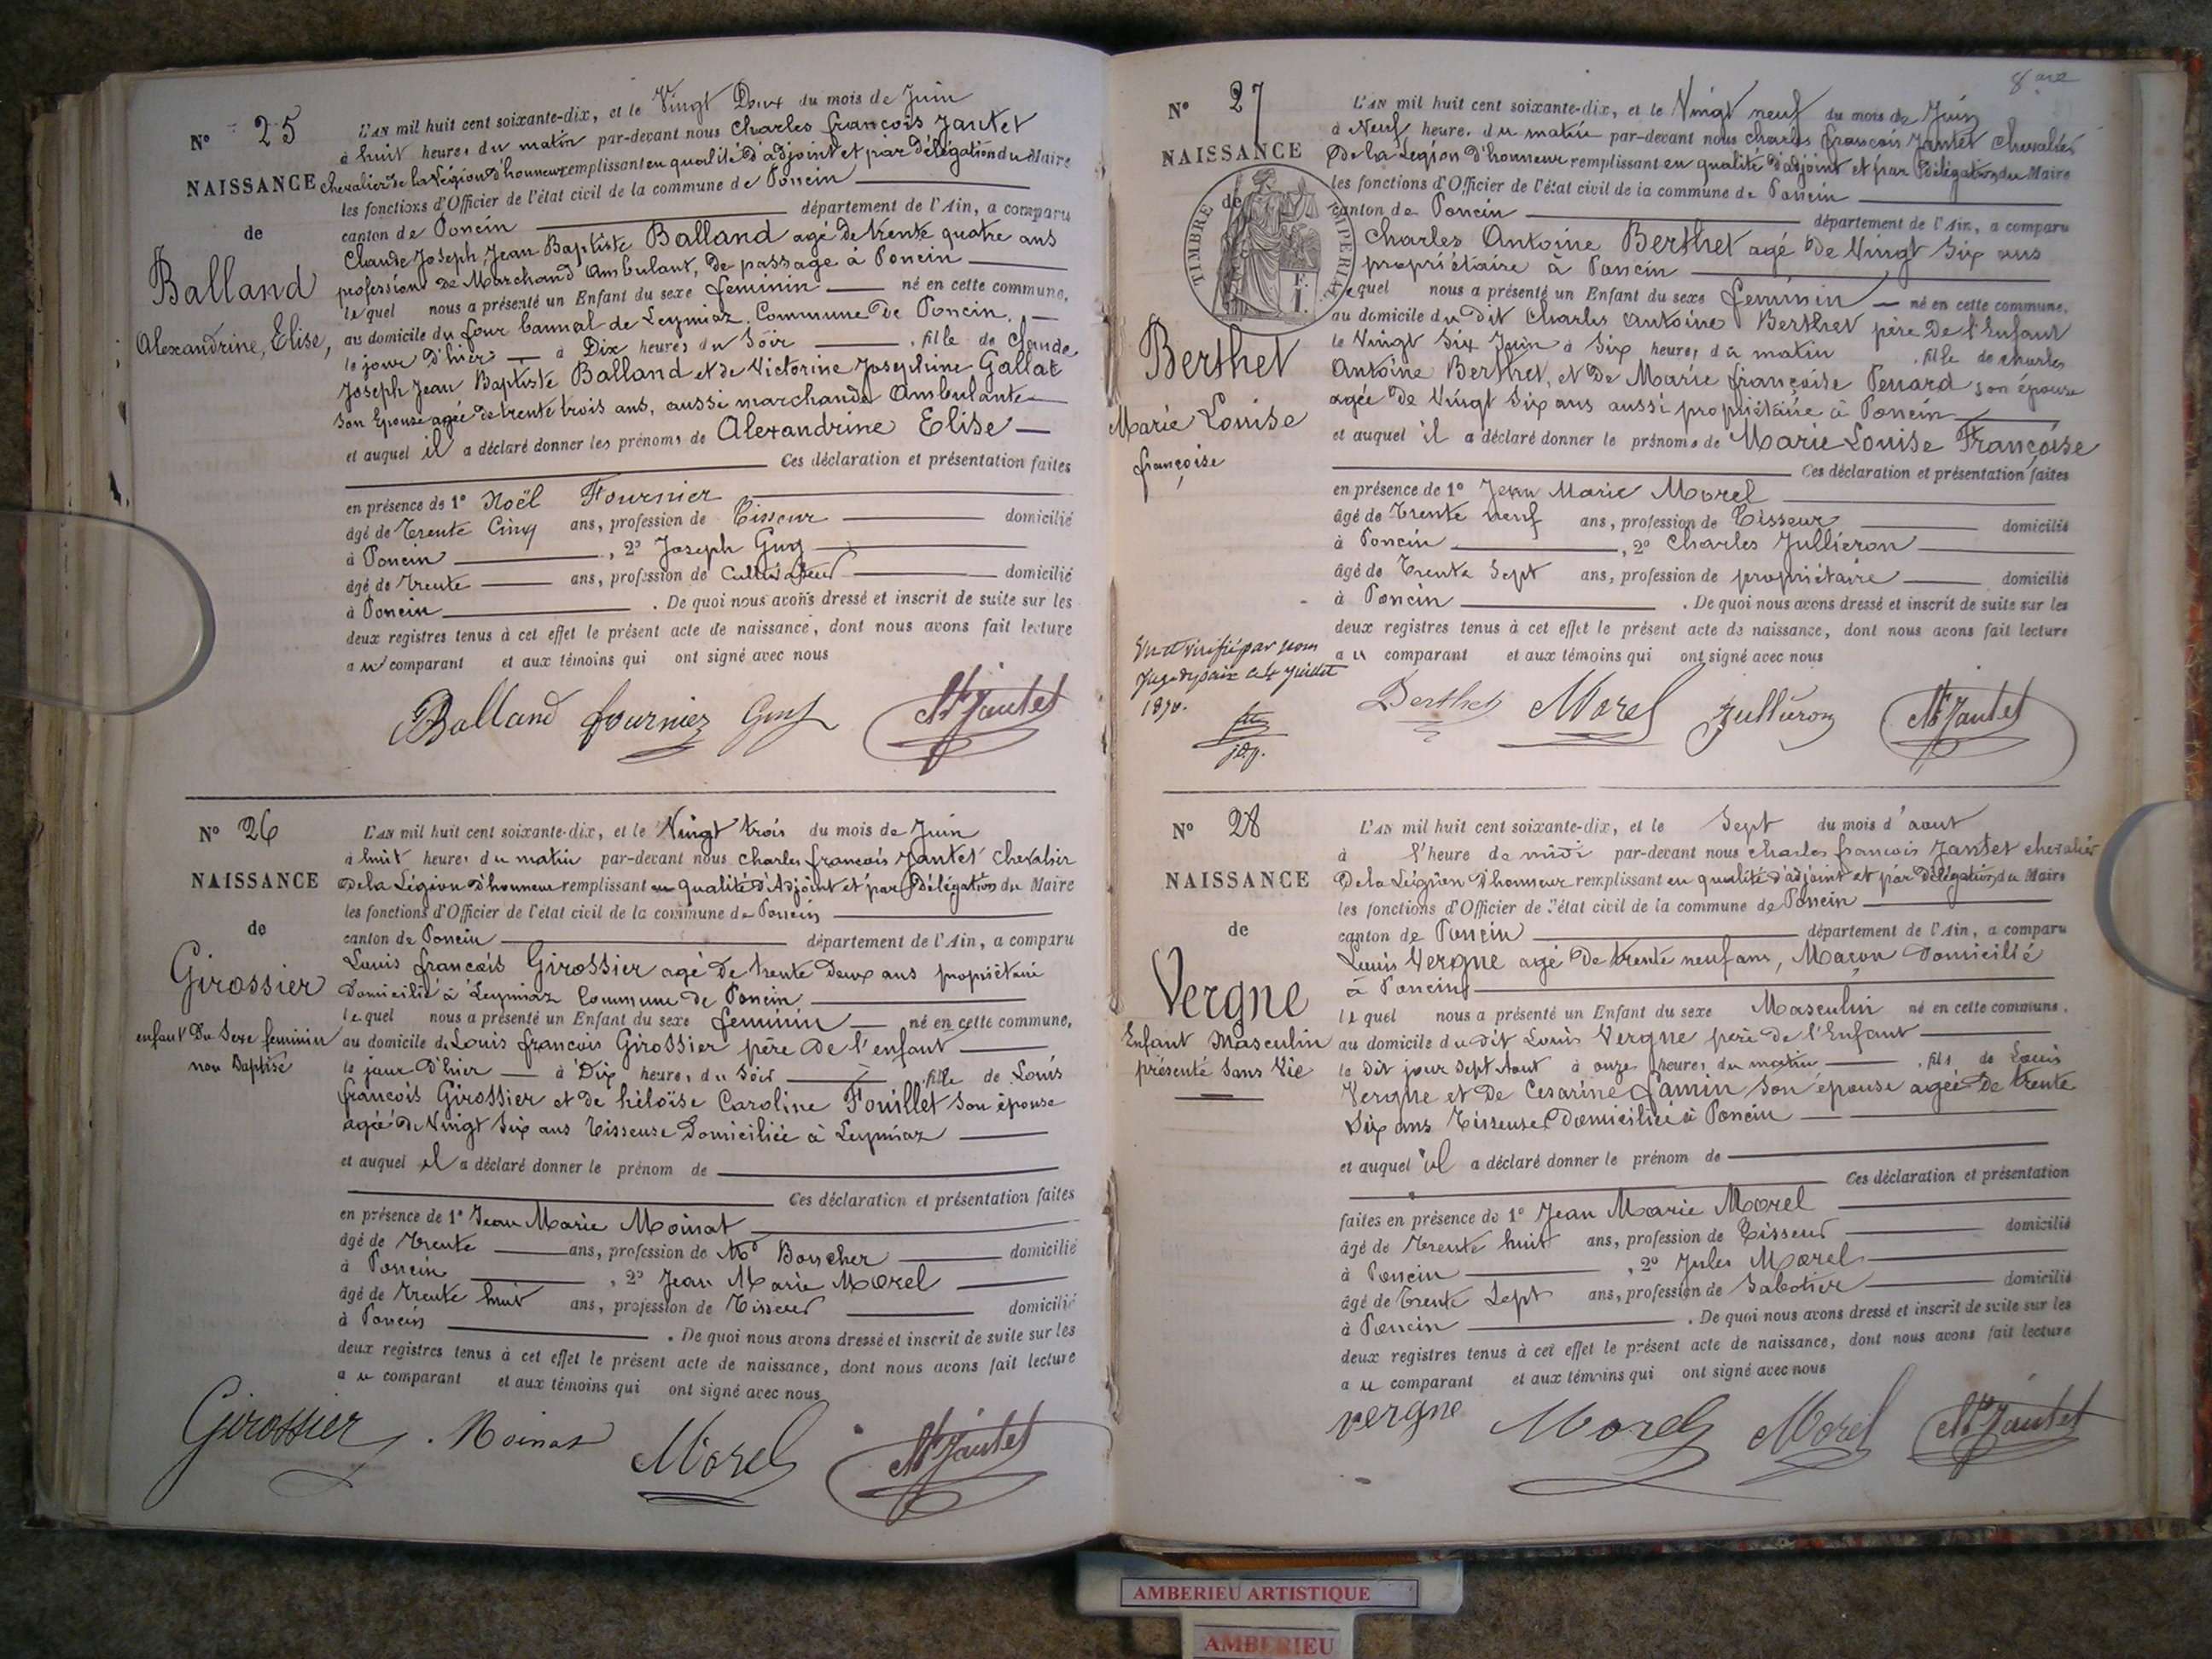 N° 25
NAISSANCE
de
Balland
Alexandrine, Elise,
L'AN mil huit cent soixante-dix, et le Vingt Deux du mois de Juin
à huit heures du matin par-devant nous Charles françois Jantet
chevalier de la Légion d'honneur remplissant en qualité d'adjoint et par Délégation du Maire
les fonctions d'Officier de l'état civil de la commune de Poncin
canton de Poncin département de l'Ain, a comparu
Claude Joseph Jean Baptiste Balland agé de trente quatre ans
profession de Marchand Ambulant, de passage à Poncin
lequel nous a présenté un Enfant du sexe feminin né en cette commune,
au domicile du four bannal de Leymiaz, Commune de Poncin,
le jour d'hier à Dix heures du Soir , fille de Claude
Joseph Jean Baptiste Balland et de Victorine Josephine Gallat
Son Epouse agée de trente trois ans, aussi marchande Ambulante
et auquel il a déclaré donner les prénoms de Alexandrine Elise
Ces déclaration et présentation faites
en présence de 1° Noël Fournier
âgé de Trente Cinq ans, profession de Tisseur domicilié
à Poncin , 2° Joseph Guy
âgé de trente ans, profession de Cultivateur domicilié
à Poncin . De quoi nous avons dressé et inscrit de suite sur les
deux registres tenus à cet effet le présent acte de naissance, dont nous avons fait lecture
au comparant et aux témoins qui ont signé avec nous
Balland fournier Guy Jantet
N° 26
NAISSANCE
de
Girossier
enfant Du Sexe feminin
non Baptisé
L'AN mil huit cent soixante-dix, et le Vingt trois du mois de Juin
à huit heures du matin par-devant nous Charles françois Jantet Chevalier
De la Légion d'honneur remplissant en qualité d'Adjoint et par Délégation du Maire
les fonctions d'Officier de l'état civil de la commune de Poncin
canton de Poncin département de l'Ain, a comparu
Louis françois Girossier agé de trente deux ans propriétaire
Domicilié à Leymiaz Commune de Poncin
lequel nous a présenté un Enfant du sexe feminin né en cette commune,
au domicile de Louis françois Girossier père de l'enfant
le jour D'hier à Dix heures du Soir , fille de Louis
françois Girossier et de héloïse Caroline Fouillet Son épouse
agée de Vingt Six ans Tisseuse Domiciliée à Leymiaz
et auquel il a déclaré donner le prénom de
Ces déclaration et présentation faites
en présence de 1° Jean Marie Moinat
âgé de trente ans, profession de Md Boucher domicilié
à Poncin , 2° Jean Marie Morel
âgé de trente huit ans, profession de Tisseur domicilié
à Poncin . De quoi nous avons dressé et inscrit de suite sur les
deux registres tenus à cet effet le présent acte de naissance, dont nous avons fait lecture
au comparant et aux témoins qui ont signé avec nous
Girossier Moinat Morel Jantet
N° 27
NAISSANCE
de
TIMBRE IMPERIAL
Berthet
Marie Louise
françoise
L'AN mil huit cent soixante-dix, et le Vingt neuf du mois de Juin
à Neuf heures du matin par-devant nous Charles françois Jantet Chevalier
De la Légion d'honneur remplissant en qualité d'adjoint et par Délégation du Maire
les fonctions d'Officier de l'état civil de la commune de Poncin
canton de Poncin département de l'Ain, a comparu
Charles Antoine Berthet agé de Vingt Six ans
propriétaire à Poncin
lequel nous a présenté un Enfant du sexe feminin né en cette commune,
au domicile du Dit Charles Antoine Berthet père de l'Enfant
le Vingt Six Juin à Six heures du matin , fille de Charles
Antoine Berthet, et De Marie françoise Penard son épouse
agée de Vingt Six ans aussi propriétaire à Poncin
et auquel il a déclaré donner le prénoms de Marie Louise Françoise
Ces déclaration et présentation faites
en présence de 1° Jean Marie Morel
âgé de Trente neuf ans, profession de Tisseur domicilié
à Poncin , 2° Charles Jullieron
âgé de Trente Sept ans, profession de propriétaire domicilié
à Poncin . De quoi nous avons dressé et inscrit de suite sur les
deux registres tenus à cet effet le présent acte de naissance, dont nous avons fait lecture
au comparant et aux témoins qui ont signé avec nous
Vu et vérifié par nous
Juge de paix le 4 Juillet
1870.
Berthet Morel Jullieron Jantet
N° 28
NAISSANCE
de
Vergne
Enfant Masculin
présenté Sans Vie
L'AN mil huit cent soixante-dix, et le Sept du mois d'aout
à l'heure de midi par-devant nous Charles françois Jantet chevalier
De la Légion d'honneur remplissant en qualité d'adjoint et par Délégation du Maire
les fonctions d'Officier de l'état civil de la commune de Poncin
canton de Poncin département de l'Ain, a comparu
Louis Vergne agé de trente neuf ans, Maçon Domicilié
à Poncin
lequel nous a présenté un Enfant du sexe Masculin né en cette commune,
au domicile du dit Louis Vergne père de l'Enfant
le Dit jour Sept Aout à onze heures du matin , fils de Louis
Vergne et De Cesarine famin Son épouse agée de trente
Six ans Tisseuse Domiciliée à Poncin
et auquel il a déclaré donner le prénom de
Ces déclaration et présentation
faites en présence de 1° Jean Marie Morel
âgé de trente huit ans, profession de Tisseur domicilié
à Poncin , 2° Jules Morel
âgé de Trente Sept ans, profession de Sabotier domicilié
à Poncin . De quoi nous avons dressé et inscrit de suite sur les
deux registres tenus à cet effet le présent acte de naissance, dont nous avons fait lecture
au comparant et aux témoins qui ont signé avec nous
vergne Morel Morel Jantet
AMBERIEU ARTISTIQUE
AMBERIEU